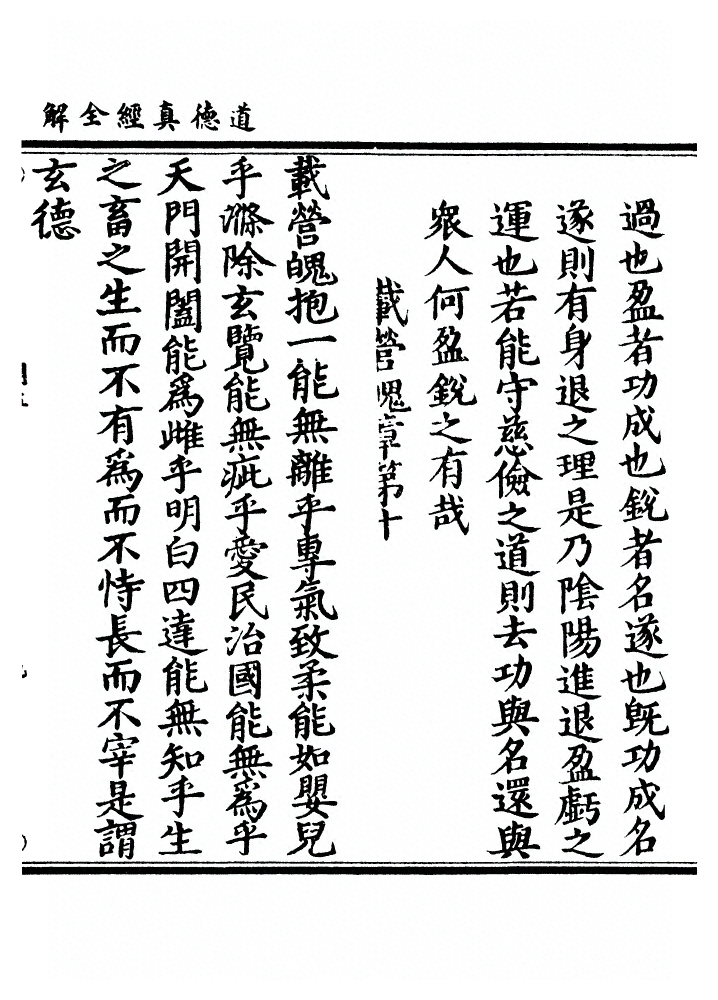 道德真經全解
過也盈者功成也銳者名遂也旣功成名
遂則有身退之理是乃陰陽進退盈虧之
運也若能守慈儉之道則去功與名還與
衆人何盈銳之有哉
載營魄章第十
載營魄抱一能無離乎專氣致柔能如嬰兒
乎滌除玄覽能無疵乎愛民治國能無爲乎
天門開闔能爲雌乎明白四達能無知乎生
之畜之生而不有爲而不恃長而不宰是謂
玄德